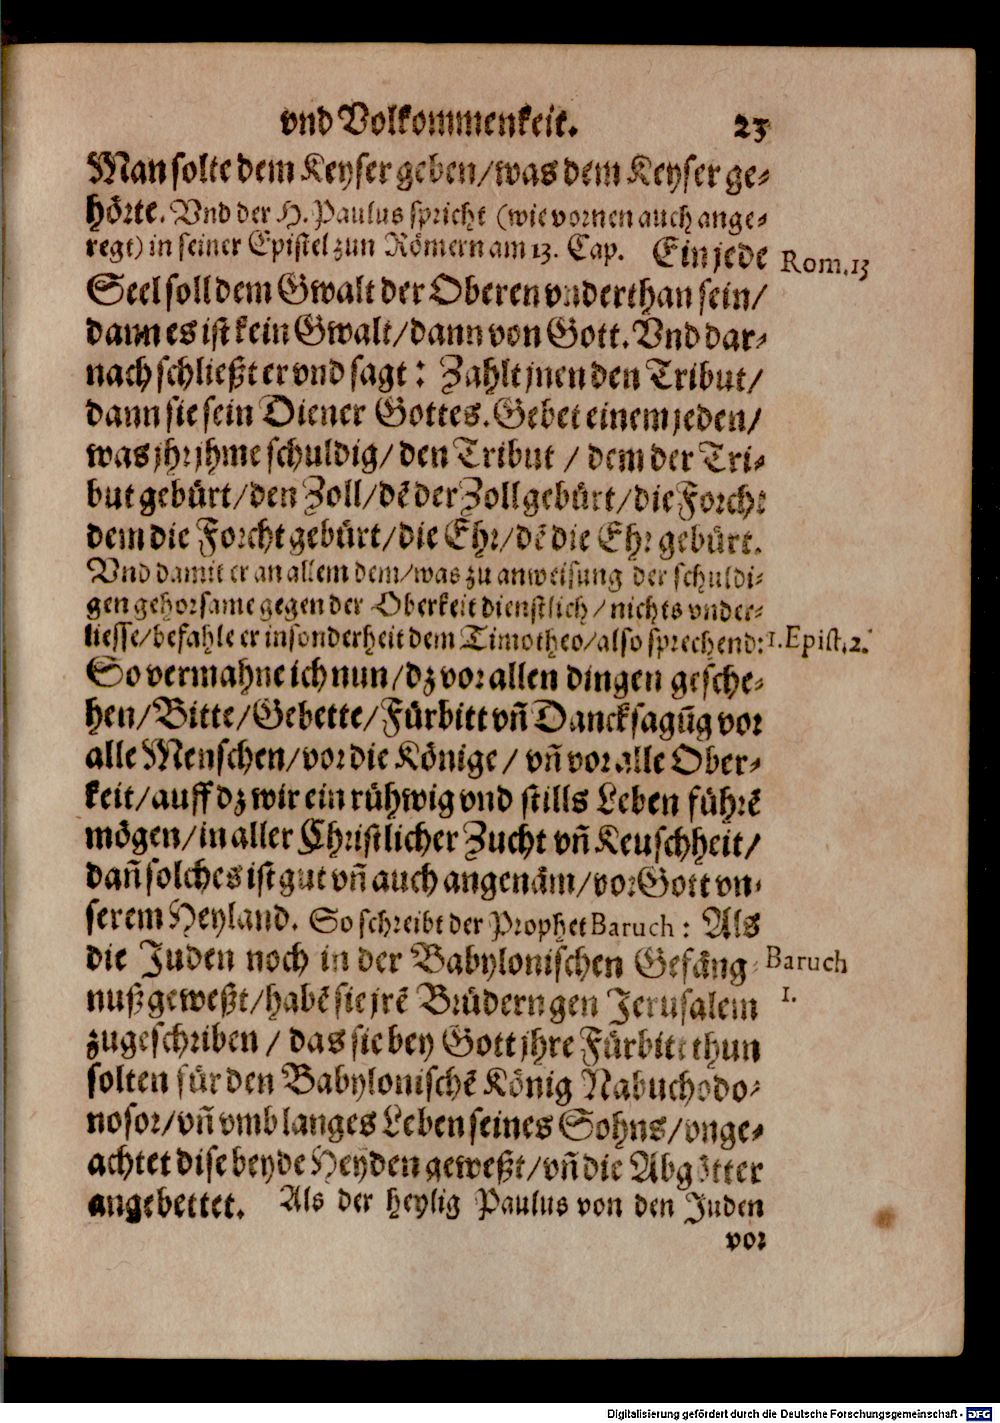 vnd Volkommenkeit. 23
Man solte dem Keyser geben/was dem Keyser ge⸗
hörte. Vnd der H. Paulus spricht (wie vornen auch ange⸗
regt) in seiner Epistel zun Römern am 13. Cap. Ein jede Rom.13
Seel soll dem Gwalt der Oberen vnderthan sein/
dann es ist kein Gwalt/dann von Gott. Vnd dar⸗
nach schließt er vnd sagt: Zahlt jnen den Tribut/
dann sie sein Diener Gottes. Gebet einem jeden/
was jhr jhme schuldig/den Tribut / dem der Tri⸗
but gebürt/den Zoll/dē der Zoll gebürt/die Forcht
dem die Forcht gebürt/die Ehr/dē die Ehr gebürt.
Vnd damit er an allem dem/was zu anweisung der schuldi⸗
gen gehorsame gegen der Oberkeit dienstlich / nichts vnder⸗
liesse/befahle er insonderheit dem Timotheo/also sprechend: 1.Epist.2.
So vermahne ich nun/dz vor allen dingen gesche⸗
hen/Bitte/Gebette/Fürbitt vñ Dancksagūg vor
alle Menschen/vor die Könige / vñ vor alle Ober⸗
keit/auff dz wir ein rühwig vnd stills Leben führē
mögen/in aller Christlicher Zucht vñ Keuschheit/
dañ solches ist gut vñ auch angenäm/vor Gott vn⸗
serem Heyland. So schreibt der Prophet Baruch: Als
die Juden noch in der Babylonischen Gefäng⸗ Baruch
nuß geweßt/habē sie jrē Brüdern gen Jerusalem 1.
zugeschriben / das sie bey Gott jhre Fürbitt thun
solten für den Babylonischē König Nabuchodo⸗
nosor/vñ vmb langes Leben seines Sohns/vnge⸗
achtet dise beyde Heyden geweßt/vñ die Abgötter
angebettet. Als der heylig Paulus von den Juden
vor
Digitalisierung gefördert durch die Deutsche Forschungsgemeinschaft - DFG